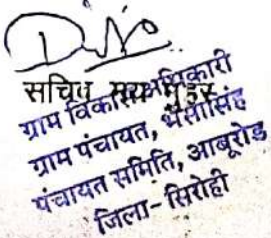 सचिव मय मुहर
ग्राम विकास अधिकारी
ग्राम पंचायत, भैंसासिंह
पंचायत समिति, आबूरोड
जिला-सिरोही